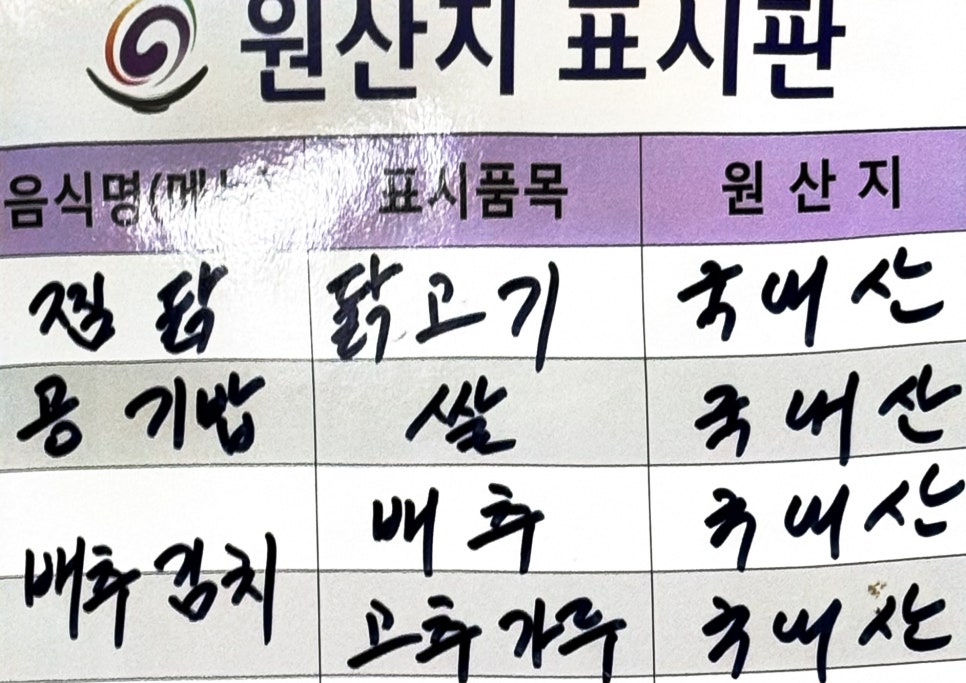 원산지 표시판
음식명(메뉴) 표시품목 원산지
찜닭 닭고기 국내산
공기밥 쌀 국내산
배추 국내산
배추김치
고추가루 국내산